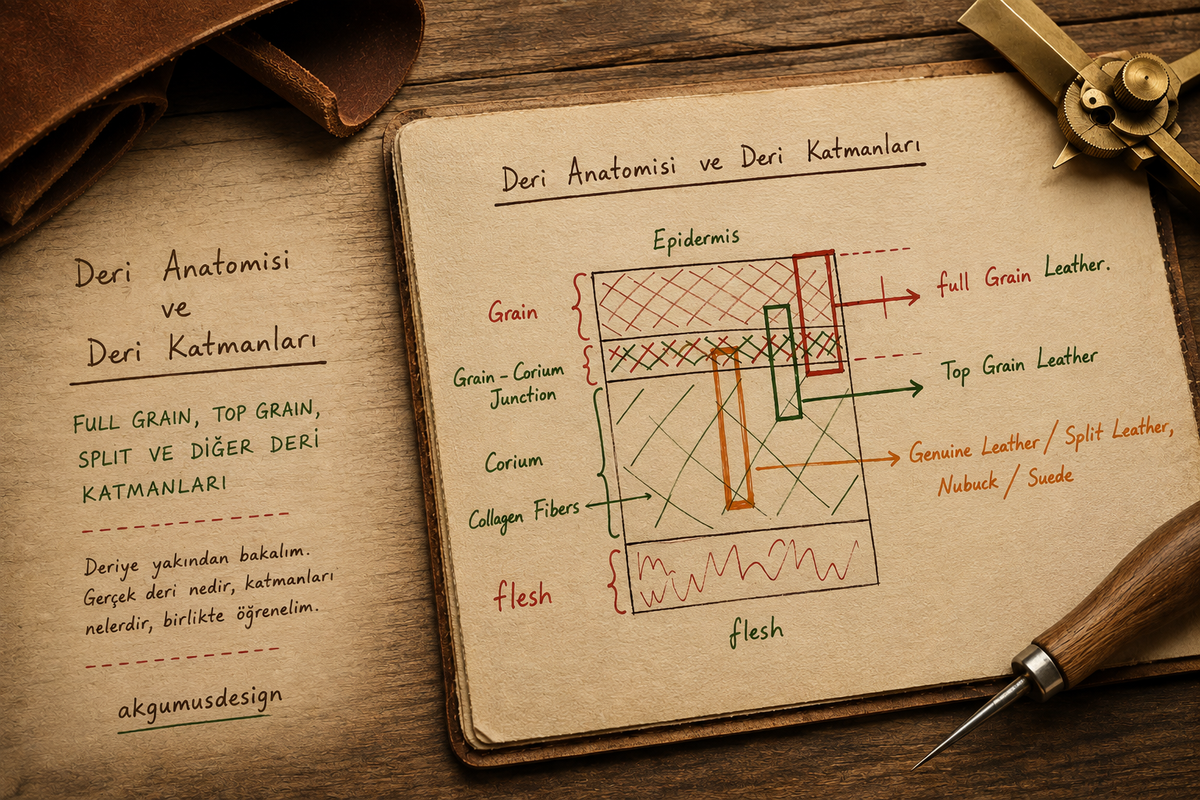 Deri Anatomisi
ve
Deri Katmanları
FULL GRAIN, TOP GRAIN,
SPLIT VE DİĞER DERİ
KATMANLARI
Deriye yakından bakalım.
Gerçek deri nedir, katmanları
nelerdir, birlikte öğrenelim.
akgumusdesign
Deri Anatomisi ve Deri Katmanları
Epidermis
Grain
full Grain Leather.
Grain - Corium
Junction
Top Grain Leather
Corium
Genuine Leather / Split Leather,
Nubuck / Suede
Collagen Fibers
flesh
flesh